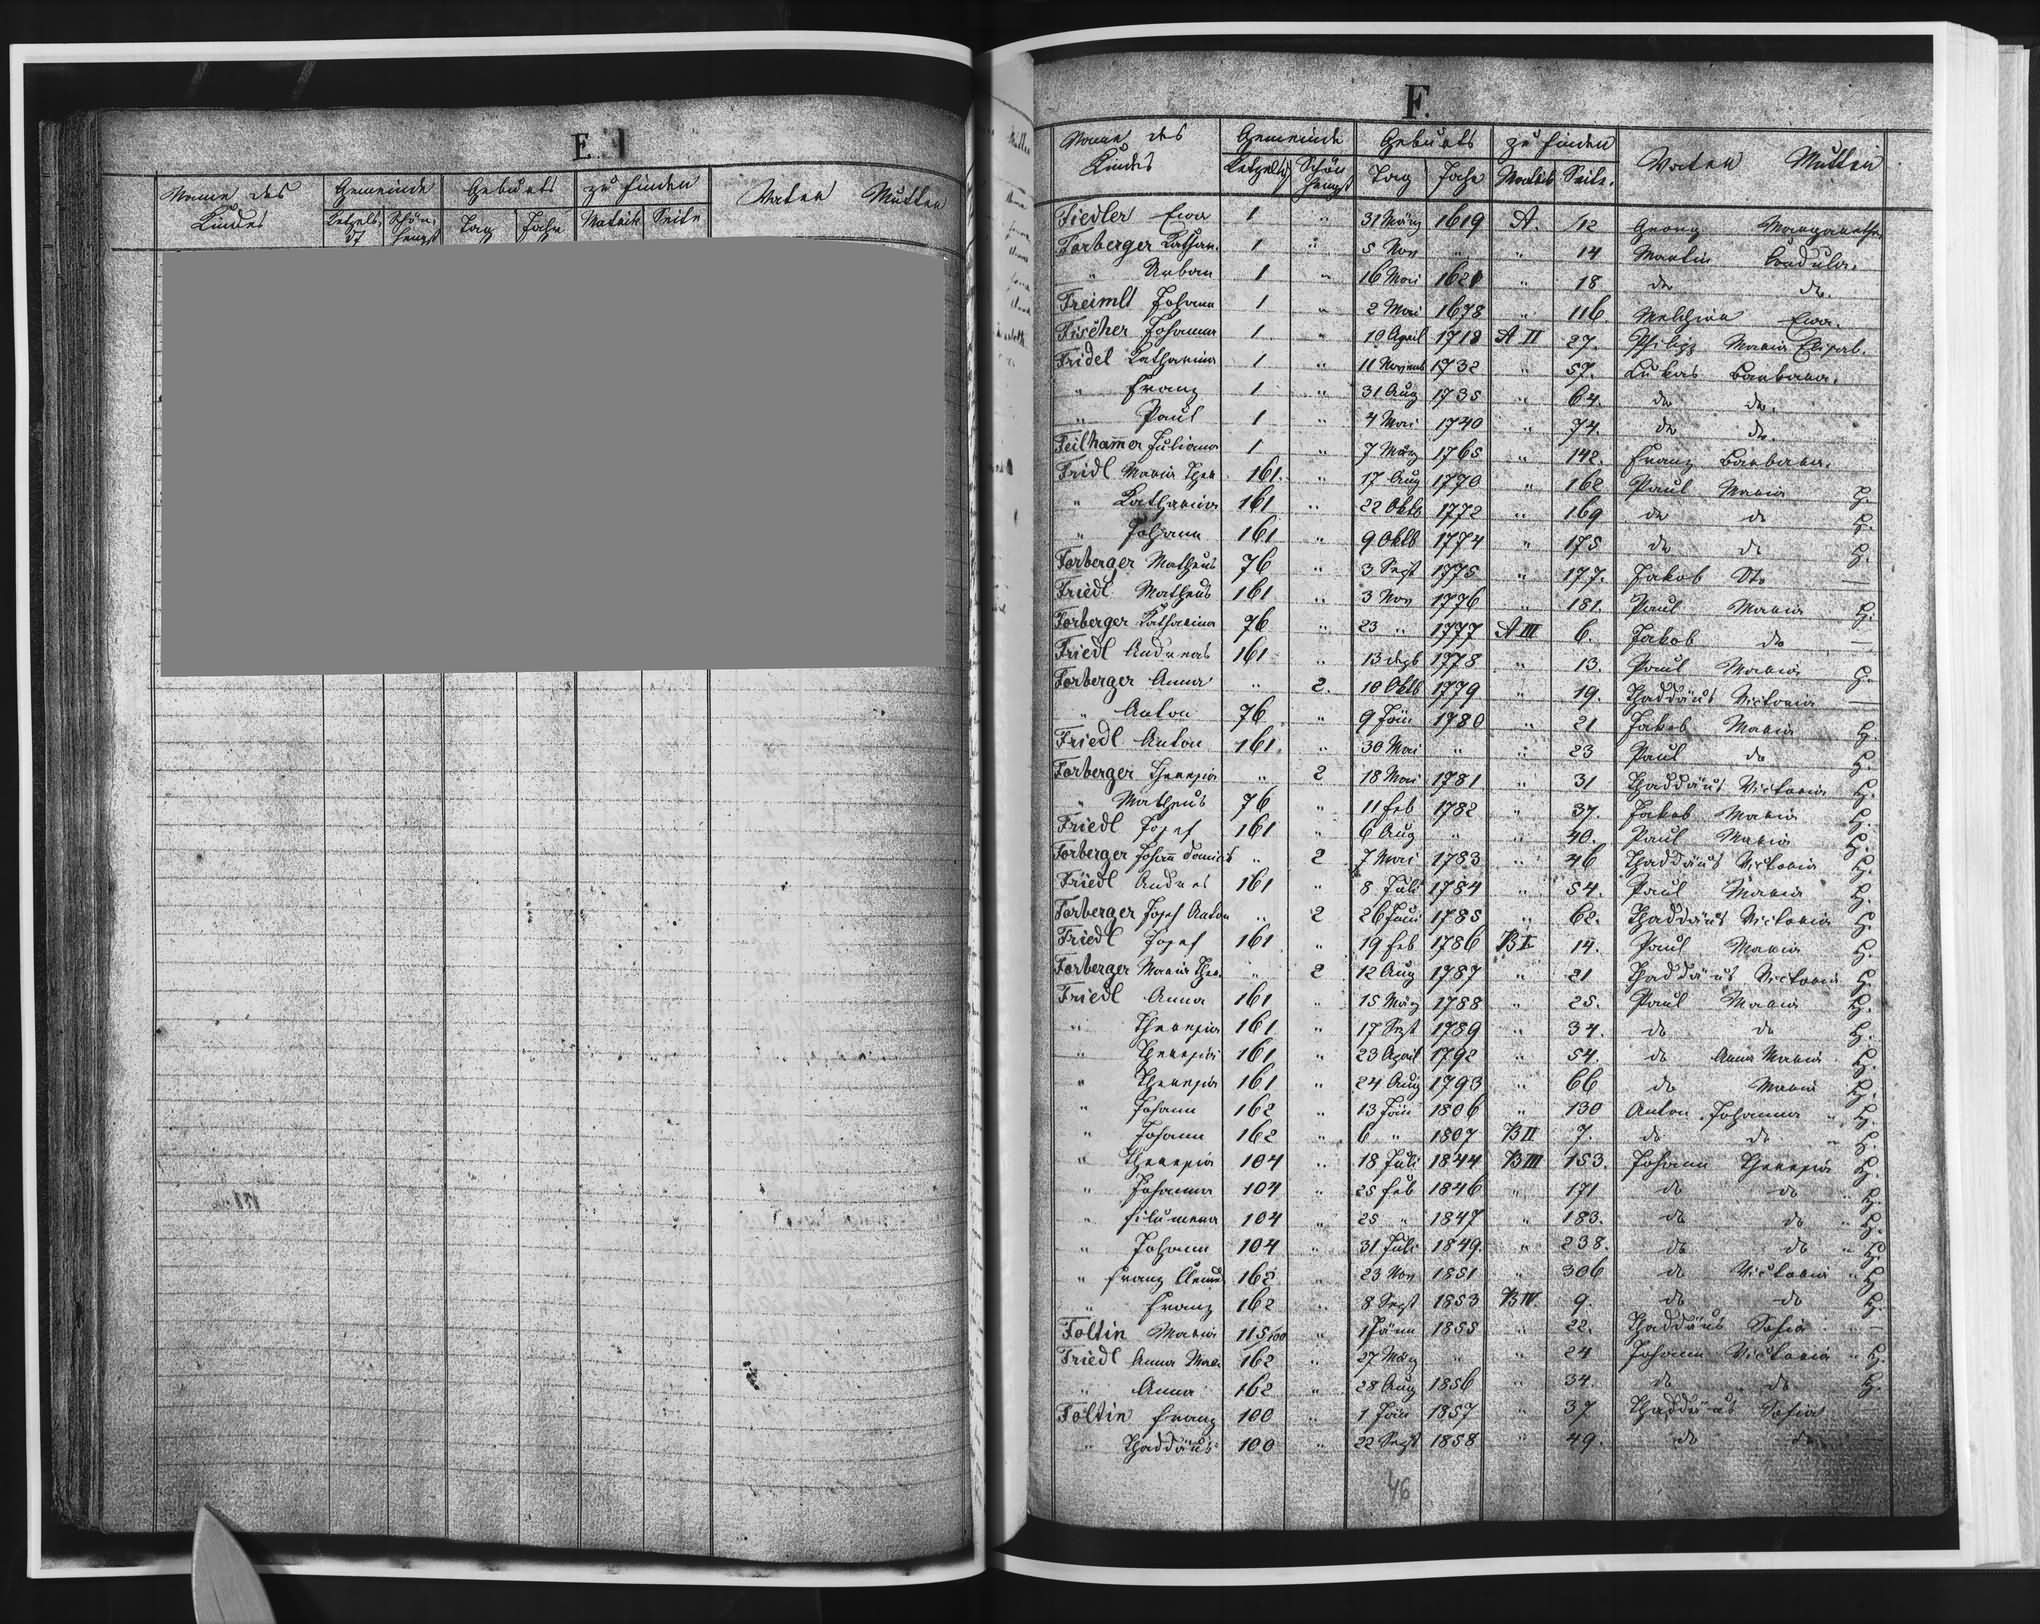 E.
Name des Kindes Gemeinde Geburts zu finden Vater Mutter
Ketzelsdf Schönhengst Tag Jahr Matrik Seite
F.
Name des Kindes Gemeinde Geburts zu finden Vater Mutter
Ketzelsdf Schönhengst Tag Jahr Matrik Seite.
Fiedler Eva 1 " 31 März 1619 A. 12 Georg Margaretha
Forberger Kathar. 1 " 5 Nov " " 14 Martin Cordula.
" Urban 1 " 16 Mai 1621 " 18 do do.
Freimlt Johann 1 " 2 Mai 1678 " 116. Melchior Eva.
Fischer Johanna 1 " 10 April 1718 A II 27. Philipp Maria Elisab.
Fridel Katharina 1 " 11 Novemb 1732 " 57. Lukas Barbara.
" Franz 1 " 31 Aug 1735 " 64. do do.
" Paul 1 " 4 Mai 1740 " 74. do do.
Feilham̅er Juliana 1 " 7 März 1765 " 142. Franz Barbara.
Fridl Maria Ther. 161. " 17 Aug 1770 " 162 Paul Maria H.
" Katharina 161 " 22 Oktb 1772 " 169 do do H.
" Johann 161 " 9 Oktb 1774 " 175 do do H.
Forberger Matheus 76 " 3 Sept 1775 " 177. Jakob do —
Friedl Matheus 161 " 3 Nov 1776 " 181. Paul Maria H.
Forberger Katharina 76 " 23 " 1777 A III 6. Jakob do —
Friedl Andreas 161 " 13 dezb 1778 " 13. Paul Maria H.
Forberger Anna " 2. 10 Oktb 1779 " 19. Thaddäus Victoria —
" Anton 76 " 9 Jän 1780 " 21 Jakob Maria H.
Friedl Anton 161. " 30 Mai " " 23 Paul do H.
Forberger Theresia " 2 18 Mai 1781 " 31 Thaddäus Victoria H.
" Matheus 76 " 11 Feb 1782 " 37. Jakob Maria H.
Friedl Josef 161 " 6 Aug " " 40. Paul Maria H.
Forberger Johan̅ Daniel " 2 7 Mai 1783 " 46 Thaddäus Victoria H.
Friedl Andres 161 " 8 Juli 1784 " 54. Paul Maria H.
Forberger Josef Anton " 2 26 Juni 1785 " 62. Thaddäus Victoria H.
Friedl Josef 161 " 19 Feb 1786 B I 14. Paul Maria H.
Forberger Maria Ther. " 2 12 Aug 1787 " 21 Thaddäus Victoria H.
Friedl Anna 161 " 15 März 1788 " 25. Paul Maria H.
" Theresia 161 " 17 Sept 1789 " 34. do do H.
" Theresia 161 " 23 April 1792 " 54. do Anna Maria H.
" Theresia 161 " 24 Aug 1793 " 66 do Maria H.
" Johann 162 " 13 Jän 1806 " 130 Anton Johanna " H.
" Johann 162 " 6 " 1807 B II 7. do do " H.
" Theresia 104 " 18 Juli 1844 B III 153. Johann Theresia H.
" Johanna 104 " 25 Feb 1846 " 171 do do " H.
" Filumena 104 " 25 " 1847 " 183. do do " H.
" Johann 104 " 31 Juli 1849. " 238. do do " H.
" Franz 162 " 23 Nov 1851 " 306 do Victoria " H.
" Franz 162 " 8 Sept 1853 B IV. 9. do do H.
Foltin Maria 115/100 " 1 Jänn 1855 " 22. Thaddäus Sofia —
Friedl Anna Mar. 162 " 27 März " " 24 Johann Victoria " H.
" Anna 162 " 28 Aug 1856 " 34. do do H.
Foltin Franz 100 " 1 Jän 1857 " 37 Thaddäus Sofia
" Thaddäus 100 " 22 Sept 1858 " 49. do do
46